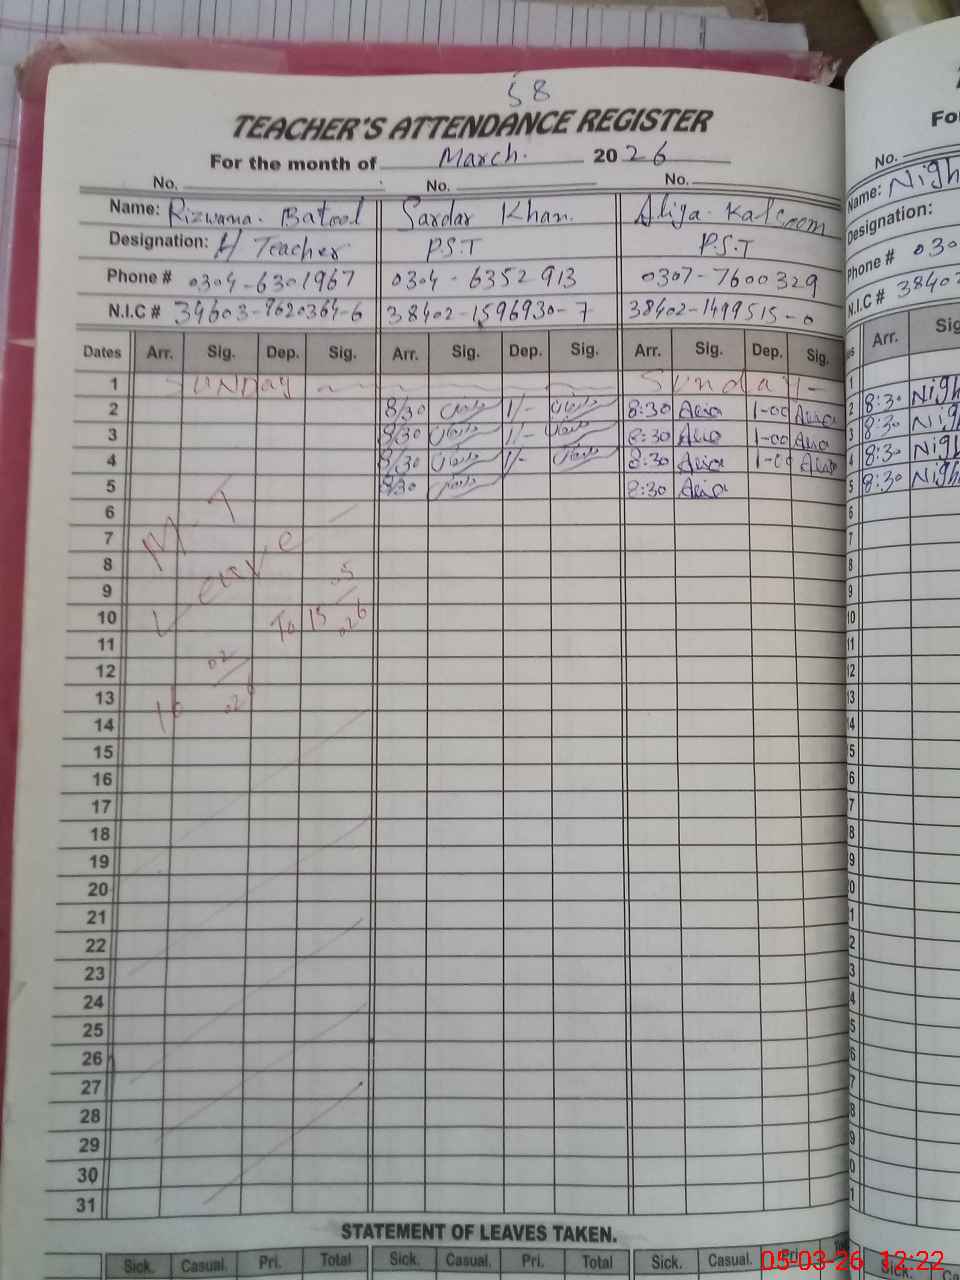 58
TEACHER'S ATTENDANCE REGISTER
For the month of March. 2026
No. No. No.
Name: Rizwana. Batool Sardar Khan. Aliya. Kalsoom
Designation: H Teacher P.S.T P.S.T
Phone # 0304-6301967 0304-6352913 0307-7600329
N.I.C # 34603-9620364-6 38402-1596930-7 38402-1499515-0
Dates Arr. Sig. Dep. Sig. Arr. Sig. Dep. Sig. Arr. Sig. Dep. Sig.
1 SUNDAY Sunday
2 8/30 1/- 8:30 Alia 1-00 Alia
3 8/30 1/- 8:30 Alia 1-00 Alia
4 8/30 1/- 8:30 Alia 1-00 Alia
5 8/30 8:30 Alia
6
7
8
9
10
11
12
13
14
15
16
17
18
19
20
21
22
23
24
25
26
27
28
29
30
31
M-T
Leave
16 02/026 To 15 05/026
STATEMENT OF LEAVES TAKEN.
Sick. Casual. Pri. Total Sick. Casual. Pri. Total Sick. Casual. Pri.
No.
Name: Nigh
Designation:
Phone # 030
N.I.C # 3840
Arr. Sig
1
2 8:30 Nigh
3 8:30 Nig
4 8:30 Nig
5 8:30 Nigh
6
7
8
9
Sick.
05-03-26 12:22